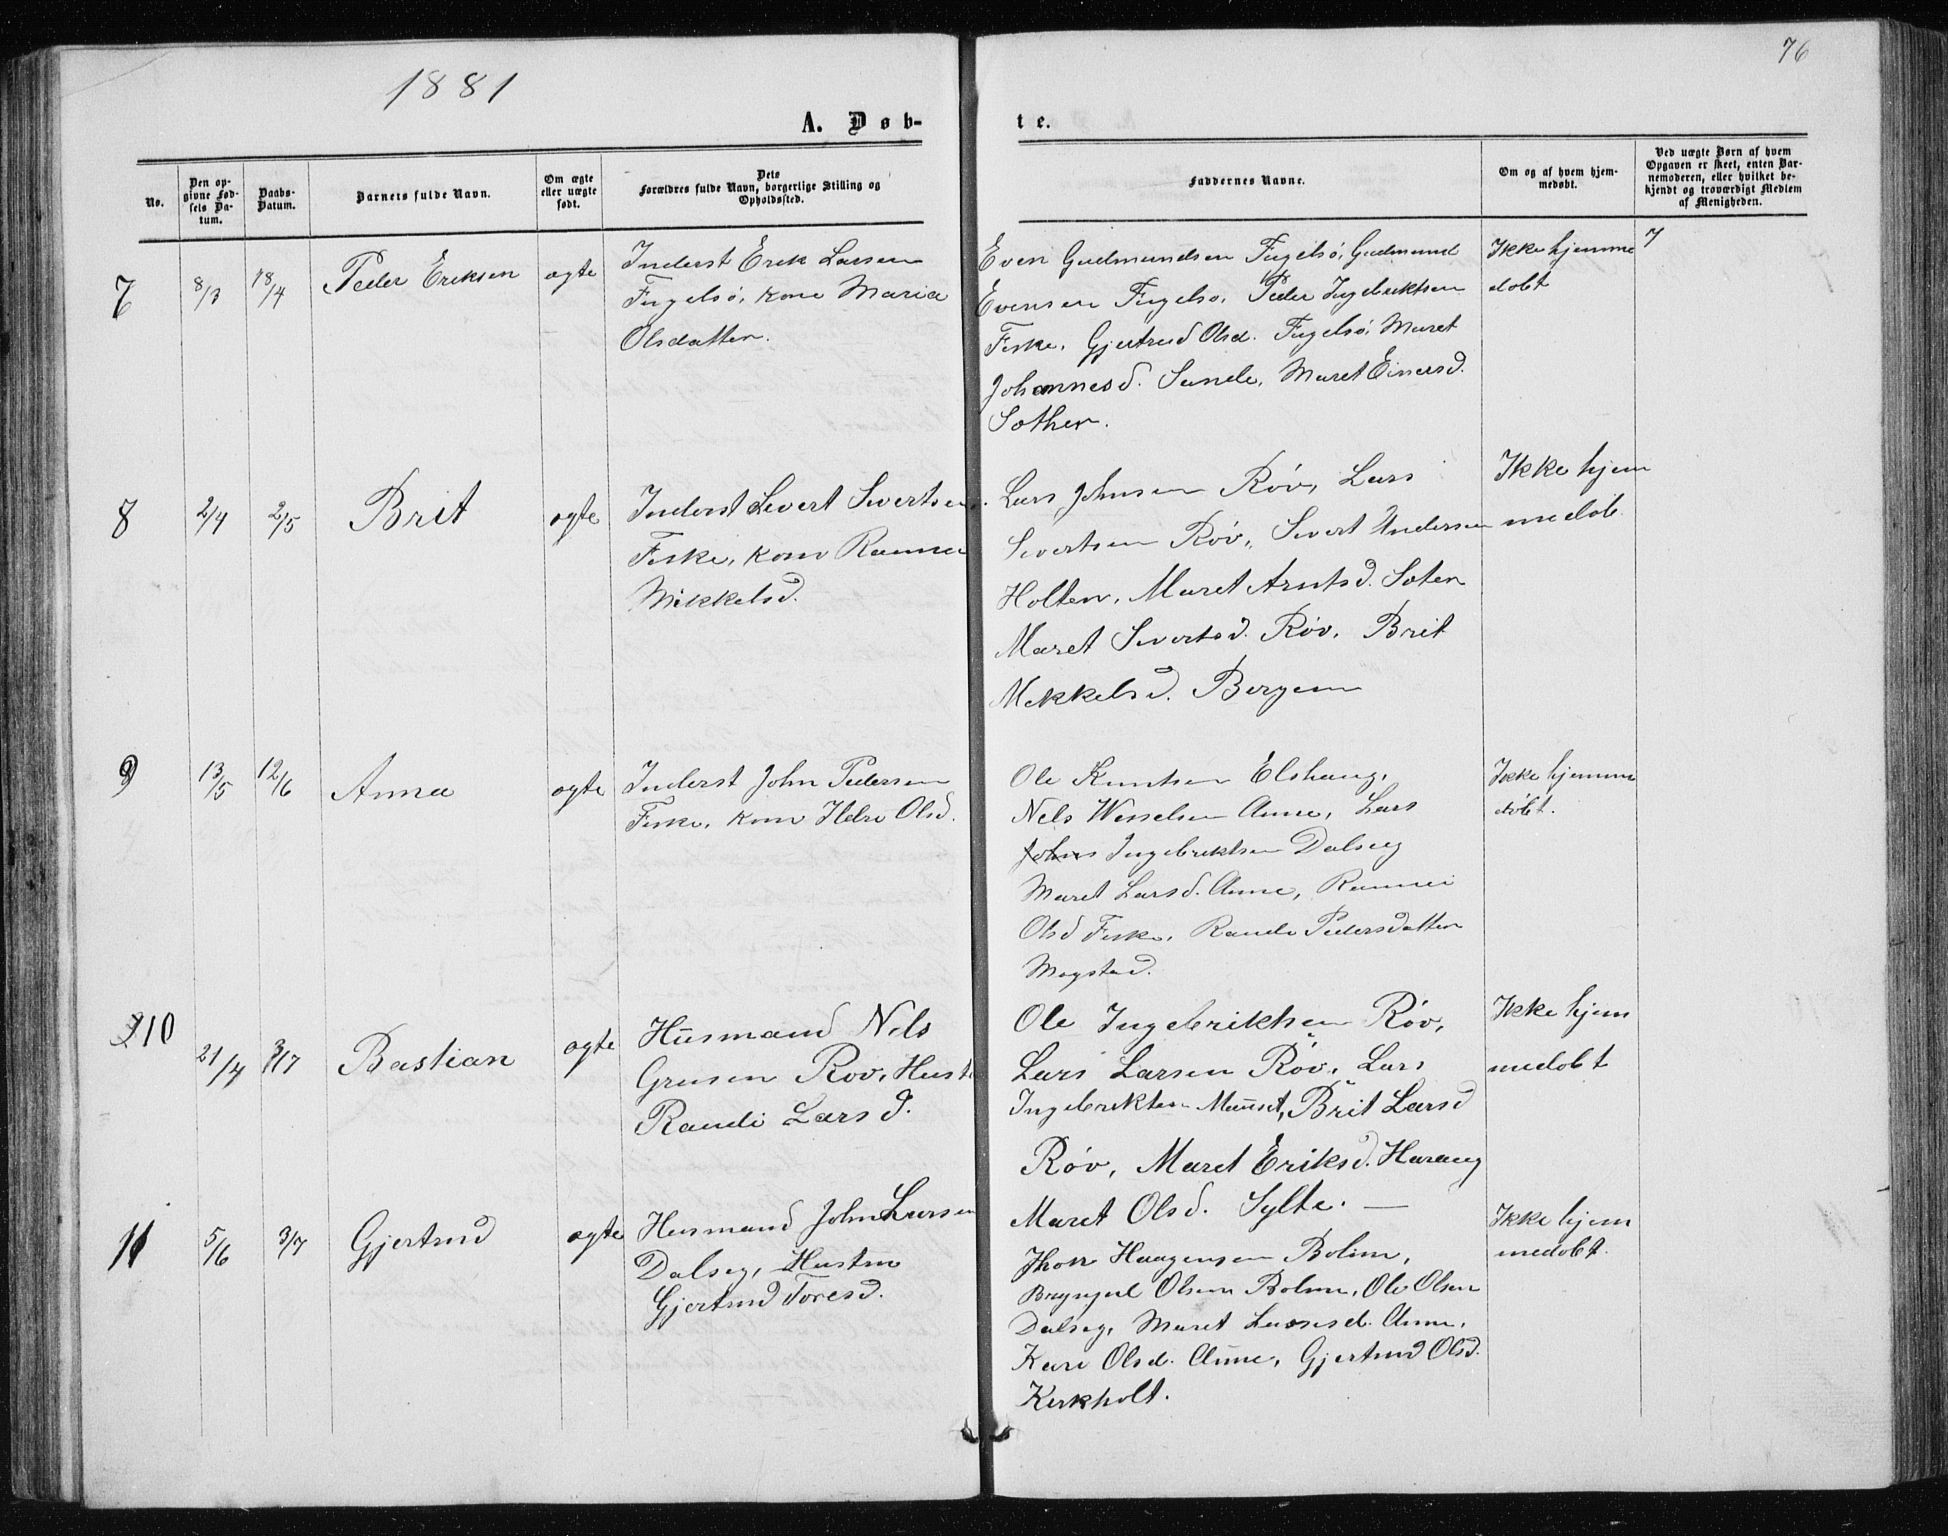 1881
76
A. Døb-
te.
No.
Den op-
givne Fød-
sels Da-
tum.
Daabs-
Datum.
Barnets fulde Navn.
Om ægte
eller uægte
født.
Dets
Forældres fulde Navn, borgerlige Stilling og
Opholdssted.
Faddernes Navne.
Om og af hvem hjem-
medøbt.
Ved uægte Børn af hvem
Opgaven er skeet, enten Bar-
nemoderen, eller hvilket be-
kjendt og troværdigt Medlem
af Menigheden.
7 8/3 18/4 Peder Eriksen ægte
Inderst Erik Larsen
Fugelsø, Kone Maria
Olsdatter.
Even Gudmundsen Fugelsø, Gudmund
Evensen Fugelsø, Peder Ingebriktsen
Fiske, Gjertrud Olsd. Fugelsø, Maret
Johannesd. Sande, Maret Einersd.
Sother.
Ikke hjemme
døbt
7
8 2/4 2/5 Brit ægte
Inderst Sivert Sivertsen
Fiske, Kone Rannei
Mikkelsd.
Lars Johnsen Røv, Lars
Sivertsen Røv, Sivert Andersen
Holten, Maret Arntsd. Soten
Maret Sivertsd. Røv, Brit
Mikkelsd. Bergem
Ikke hjem
medøb
9 13/5 12/6 Anne ægte
Inderst John Pedersen
Fiske, Kone Helre Olsd.
Ole Knutsen Elshaug,
Nels Wesselsen Aune, Lars
Johns Ingebriktsen Dalseg
Maret Larsd. Aune, Rannei
Olsd Fiske, Randi Pedersdatter
Mogstad.
Ikke hjemme
døbt.
10 21/4 3/7 Bastian ægte
Husmand Nels
Grusen Røv, Hustr
Randi Larsd.
Ole Ingebriktsen Røv,
Lars Larsen Røv, Lars
Ingebriktsen Mauset, Brit Larsd
Røv, Maret Eriksd. Harang
Maret Olsd. Sylte. —
Ikke hjem
medøbt
11 5/6 3/7 Gjertrud ægte
Husmand John Larsen
Dalseg, Hustru
Gjertrud Toresd.
Jhon Haagensen Bolme,
Brynjel Olsen Bolme, Ole Olsen
Dalseg, Maret Larsesd. Aune,
Kari Olsd. Aune, Gjertrud Olsd.
Kirkholt.
Ikke hjem
medøbt.